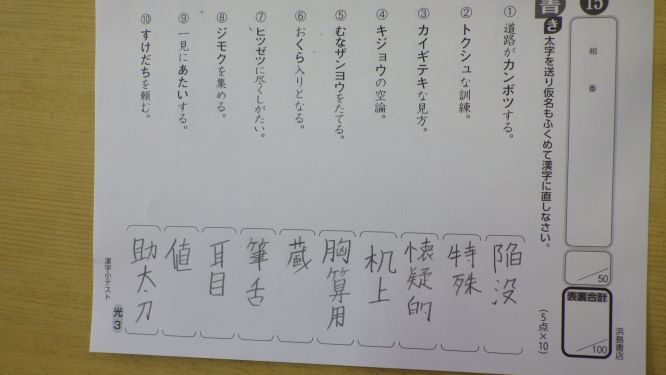 15
書き 太字を送り仮名もふくめて漢字に直しなさい。
(5点×10)
組
番
50
表裏合計
100
浜島書店
① 道路がカンボツする。
陥没
② トクシュな訓練。
特殊
③ カイギテキな見方。
懐疑的
④ キジョウの空論。
机上
⑤ むなザンヨウをたてる。
胸算用
⑥ おくら入りとなる。
蔵
⑦ ヒツゼツに尽くしがたい。
筆舌
⑧ ジモクを集める。
耳目
⑨ 一見にあたいする。
値
⑩ すけだちを頼む。
助太刀
漢字小テスト 光3